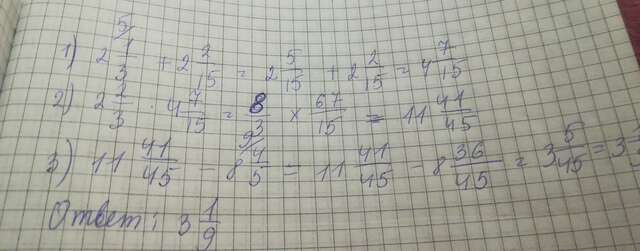 1) 2 5/ 1/3 + 2 2/15 = 2 5/15 + 2 2/15 = 4 7/15
2) 2 2/3 · 4 7/15 = 8/3 × 67/15 = 11 41/45
3) 11 41/45 - 8 9/ 4/5 = 11 41/45 - 8 36/45 = 3 5/45 = 3
Ответ: 3 1/9